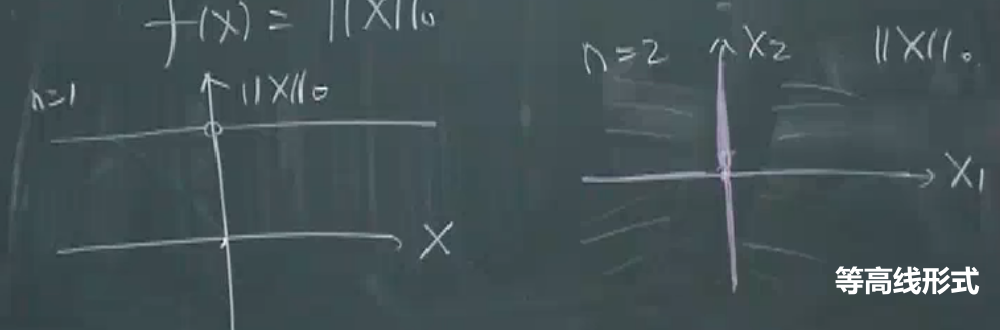 f(x) = ||X||₀
n=1
||X||₀
X
n=2
X₂
||X||₀
X₁
等高线形式